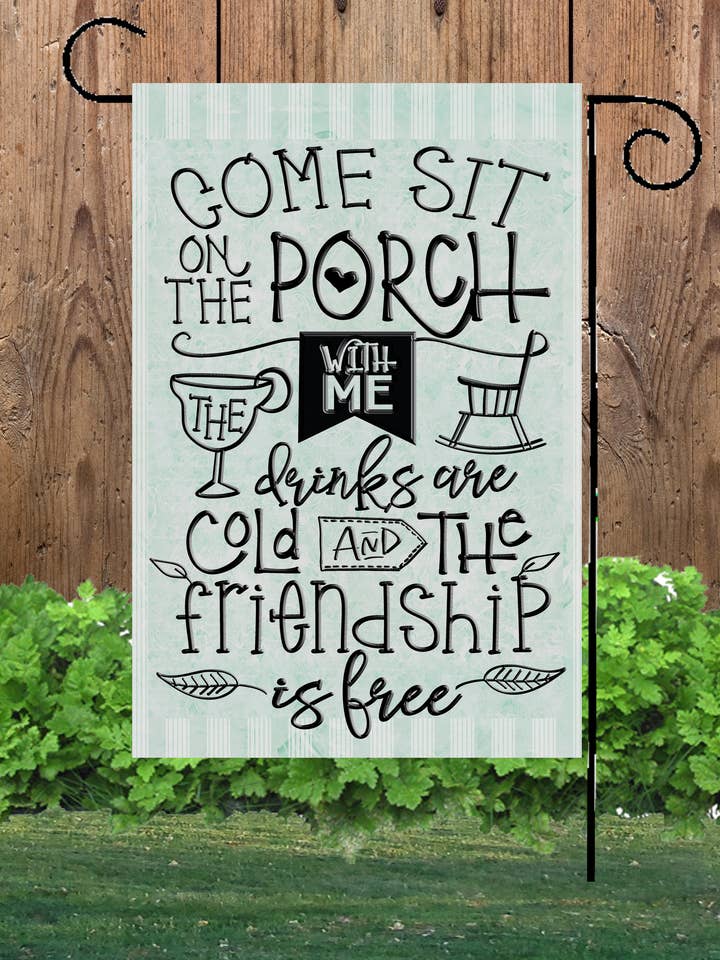 COME SIT
ON THE PORCH
WITH ME
THE
drinks are
COLD AND THE
friendship
is free